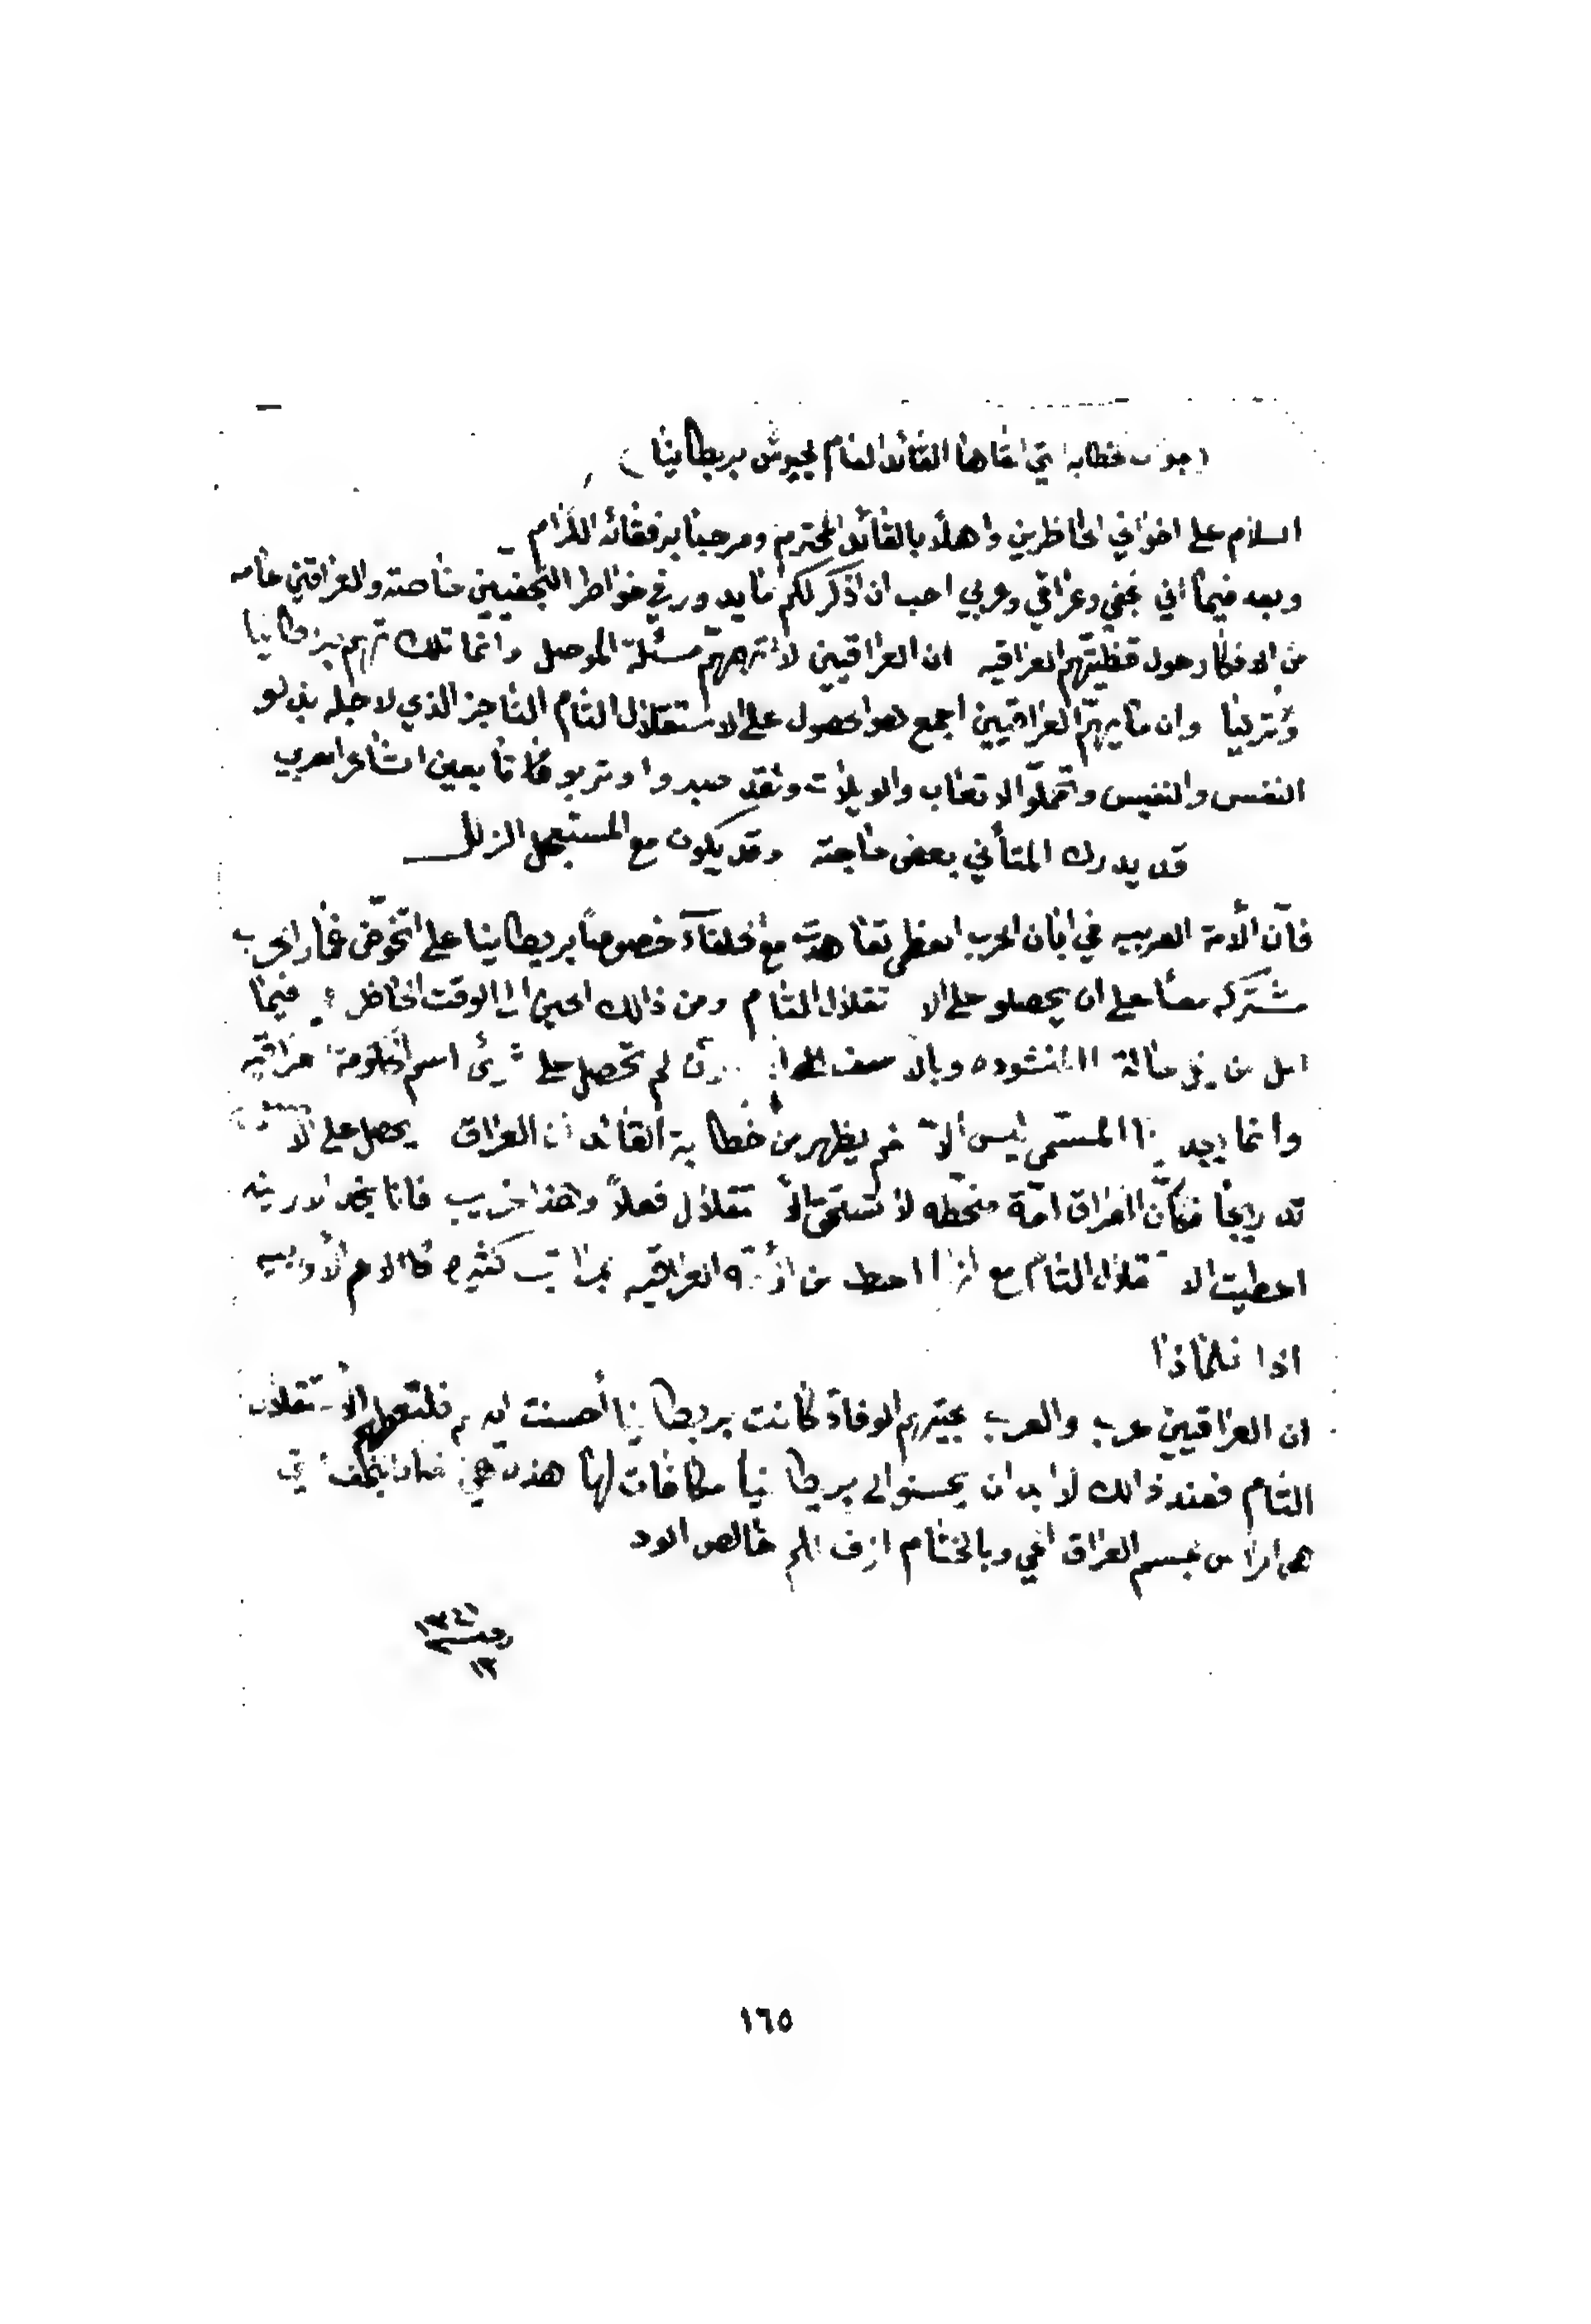 (جواب خطابه التي القاها القائد العام لجيوش بريطانيا)
السلام على اخواني الحاظرين واهلاً بالقائد المحترم ومرحبا برفقائه الكرام
وبعد فيما اني نجفي وعراقي وعربي احب ان اذكر لكم ما يدور في خواطر النجفيين خاصته والعراقيين عامه
من الافكار حول قظيتهم العراقيه ان العراقيين لا تهمهم مسئلة الموصل وانما تلك تهم بريطانيا
وتركيا وان ما يهم العراقيين اجمع هو الحصول على الاستقلال التام الناجز الذي لاجله بذلو
النفس والنفيس وتحملو الاتعاب والويلات ولقد صبروا وتربو فكانا بعين الشاعر العربي
قد يدرك المتأني بعض حاجته وقد يكون مع المستعجل الزلل
فان الأمة العربيه في ابان الحرب العظمى تعاهدت مع الحلفاء خصوصاً بريطانيا على تخوض غمار الحرب
مشتركه معاً على ان يحصلو على الا تقلال التام ومن ذالك الحين الى الوقت الحاظر فيما
امل من ظالة المنشوده وبالاسف لم تحصل على شيئ اسم الحكومة عراقيه
وانما يوجد المسمى ليس الا ثم يظهر من خطابة القائد ان العراق يحصل على
تدريجا فكأن العراق امة منحطه لا تستحق الا تقلال فعلاً وهذا غريب فانا نجد
اعطيت الا تقلال التام مع انها احط من العراقيه بمراتب كثيره كالامم
اذا فلماذا
ان العراقيين عرب والعرب بجيتهم الوفاء كانت بريطانيا أحسنت فلتعطهم الاستقلال
التام فعند ذالك لا بد ان يحسنوا الى بريطانيا مكافات لها هذه
من جسم العراق وبالختام ازف لكم خالص الود
١٣٤١
رجب
١٣
١٦٥